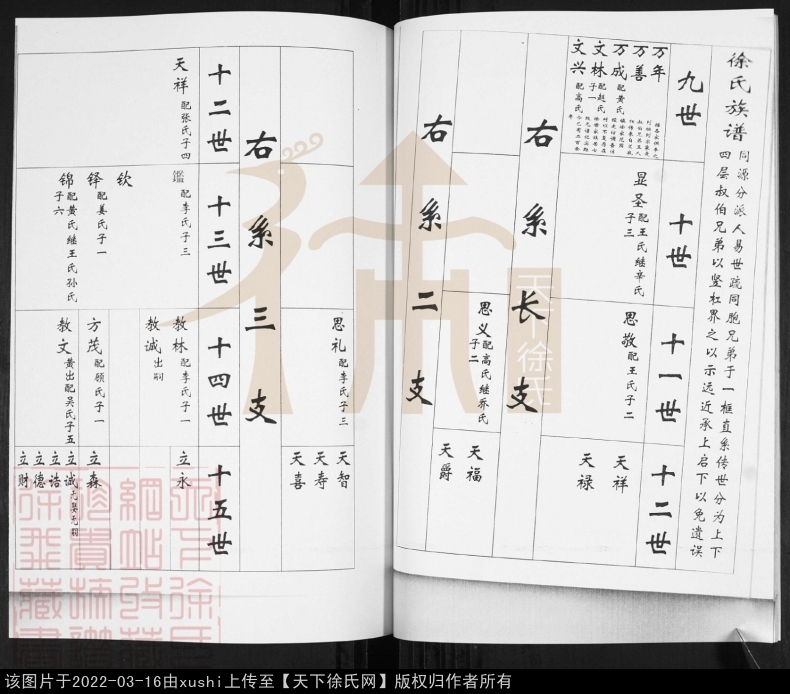 徐氏族谱
同源分派人易世疏同胞兄弟于一框直系传世分为上下
四层叔伯兄弟以竖杠界之以示远近承上启下以免遗误
九世
万年
万善
万成 配黄氏
文林 配赵氏 子一
文兴 配高氏
十世
显圣 配王氏继辛氏 子三
十一世
思敬 配王氏子二
十二世
天祥
天禄
右系长支
思义 配高氏继乔氏 子二
天福
天爵
右系二支
思礼 配李氏子三
天智
天寿
天喜
右系三支
十二世
天祥 配张氏子四
十三世
鑑 配李氏子三
钦
铎 配姜氏子一
锦 配黄氏继王氏孙氏 子六
十四世
教林 配李氏子一
教诚 出嗣
方茂 配顾氏子一
教文 黄出配吴氏子五
十五世
立永
立森
立诚
立诰
立德
立财
天下徐氏
该图片于2022-03-16由xushi上传至【天下徐氏网】版权归作者所有